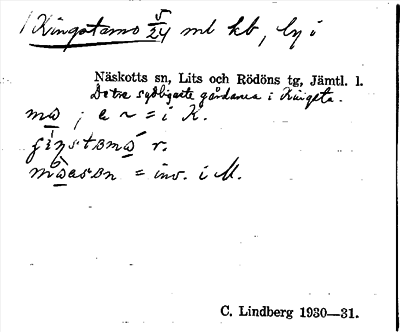 Kingstamo 5/24 ml kb, by i
Näskotts sn, Lits och Rödöns tg, Jämtl. l.
De tre sydligaste gårdarna i Kingsta.
mω ; a ~ = i K.
r.
= inv. i M.
C. Lindberg 1930—31.